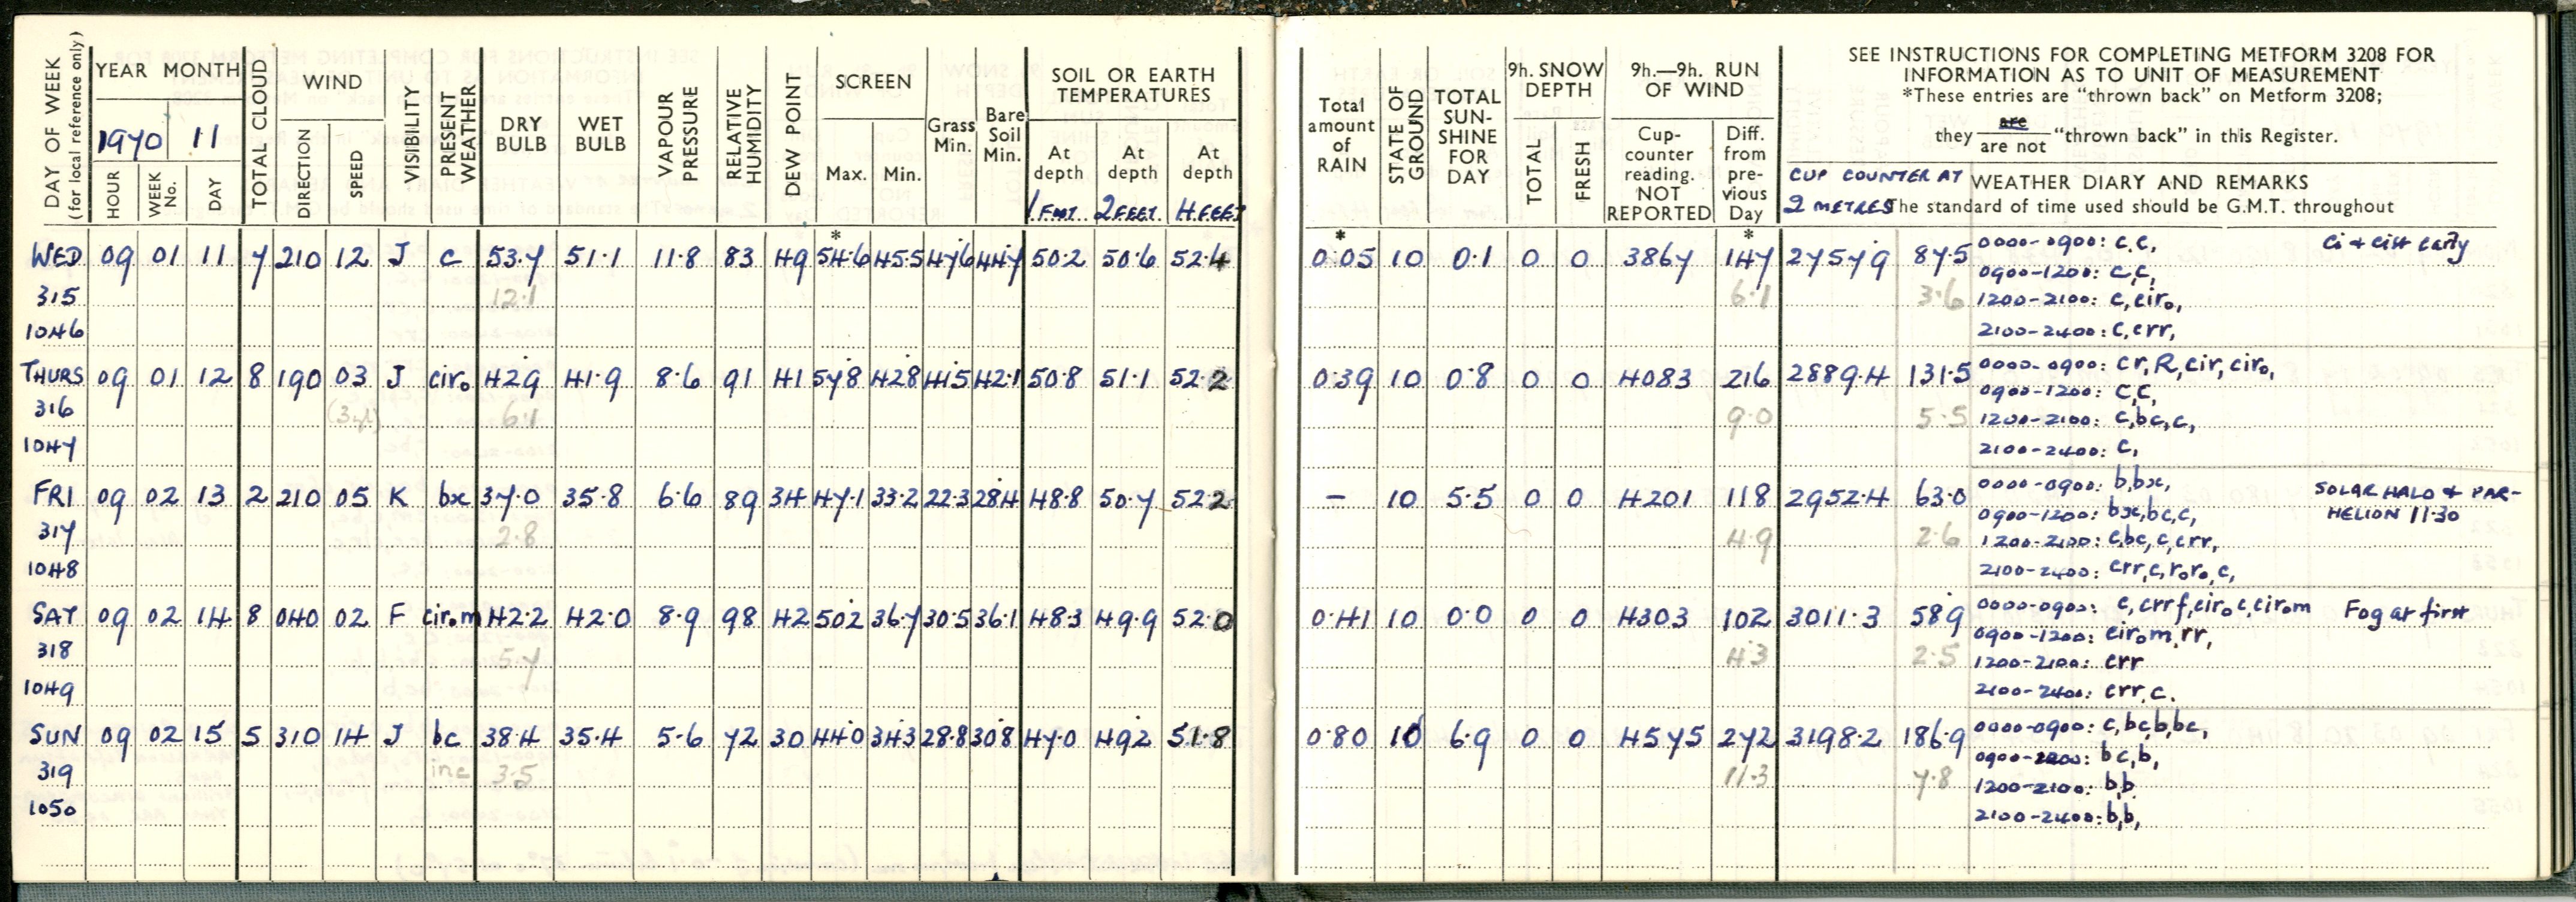 DAY OF WEEK (for local reference only)
YEAR MONTH
1970 11
HOUR WEEK No. DAY
TOTAL CLOUD
WIND
DIRECTION SPEED
VISIBILITY
PRESENT WEATHER
DRY BULB
WET BULB
VAPOUR PRESSURE
RELATIVE HUMIDITY
DEW POINT
SCREEN
Max. Min.
Grass Min.
Bare Soil Min.
SOIL OR EARTH TEMPERATURES
At depth At depth At depth
1 FOOT 2 FEET 4 FEET
Total amount of RAIN
STATE OF GROUND
TOTAL SUN-SHINE FOR DAY
9h. SNOW DEPTH
TOTAL FRESH
9h.—9h. RUN OF WIND
Cup-counter reading. NOT REPORTED
Diff. from pre-vious Day
SEE INSTRUCTIONS FOR COMPLETING METFORM 3208 FOR
INFORMATION AS TO UNIT OF MEASUREMENT
*These entries are "thrown back" on Metform 3208;
they are / are not "thrown back" in this Register.
CUP COUNTER AT 2 METRES
WEATHER DIARY AND REMARKS
The standard of time used should be G.M.T. throughout
* *  *
WED 09 01 11 7 210 12 J c 53.7 51.1 11.8 83 49 54.6 45.5 47.6 44.7 50.2 50.6 52.4 0.05 10 0.1 0 0 3867 147 2757.9 87.5 0000-0900: c,c, Ci & cist early
0900-1200: c,c,
315 12.1 6.1 3.6 1200-2100: c,cir₀,
1046 2100-2400: c,crr,
THURS 09 01 12 8 190 03 J cir₀ 42.9 41.9 8.6 91 41 57.8 42.8 41.5 42.1 50.8 51.1 52.2 0.39 10 0.8 0 0 4083 216 2889.4 131.5 0000-0900: cr,R,cir,cir₀,
0900-1200: c,c,
316 6.1 9.0 5.5 1200-2100: c,bc,c,
1047 2100-2400: c,
FRI 09 02 13 2 210 05 K bx 37.0 35.8 6.6 89 34 47.1 33.2 22.3 28.4 48.8 50.7 52.2 – 10 5.5 0 0 4201 118 2952.4 63.0 0000-0900: b,bx, SOLAR HALO & PAR-
0900-1200: bx,bc,c, HELION 11.30
317 2.8 4.9 2.6 1200-2100: c,bc,c,crr,
1048 2100-2400: crr,c,r₀r₀,c,
SAT 09 02 14 8 040 02 F cir₀m 42.2 42.0 8.9 98 42 50.2 36.7 30.5 36.1 48.3 49.9 52.0 0.41 10 0.0 0 0 4303 102 3011.3 58.9 0000-0900: c,crrf,cir₀c,cir₀m Fog at first
0900-1200: cir₀m,rr,
318 5.7 4.3 2.5 1200-2100: crr
1049 2100-2400: crr,c.
SUN 09 02 15 5 310 14 J bc 38.4 35.4 5.6 72 30 44.0 34.3 28.8 30.8 47.0 49.2 51.8 0.80 10 6.9 0 0 4575 272 3198.2 186.9 0000-0900: c,bc,b,bc,
bc,b,
319 inc 3.5 11.3 7.8 1200-2100: b,b
1050 2100-2400: b,b,